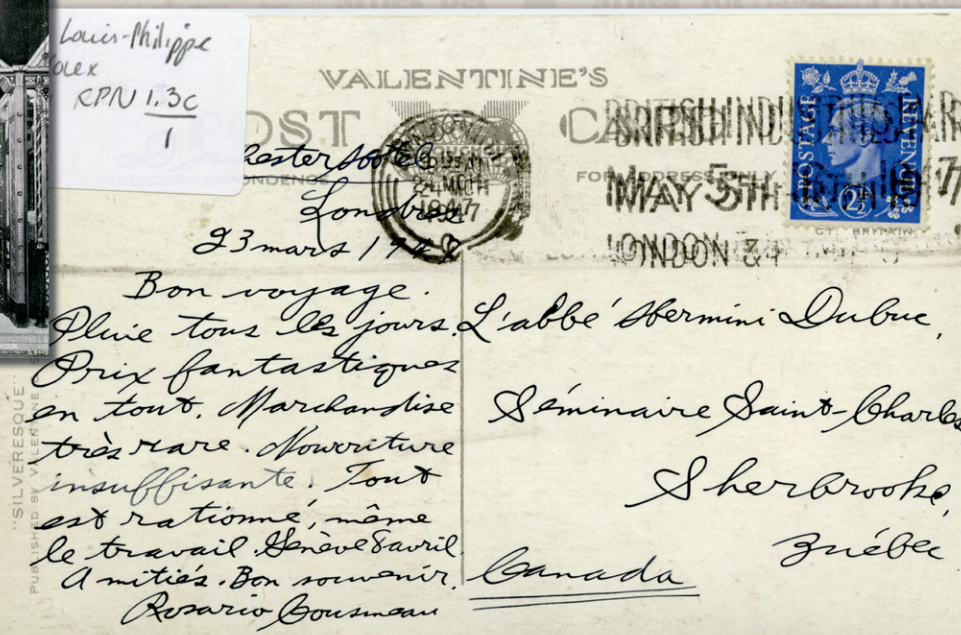 Louis-Philippe
RPN 1.3c
1
VALENTINE'S
POST CA
FOR ADDRESS ONLY
BRITISH INDUSTRIES FAIR
MAY 5TH 1947
LONDON
1947
POSTAGE REVENUE
2½
GT. BRITAIN
chester Hotel
Londres
23 mars 194
Bon voyage.
Pluie tous les jours.
Prix fantastiques
en tout. Marchandise
très rare. Nourriture
insuffisante. Tout
est rationné, même
le travail. Genève 8 avril.
Amitiés. Bon souvenir.
Rosario Cousineau
L'abbé Hermini Dubuc,
Séminaire Saint-Charles
Sherbrooke,
Québec
Canada
"SILVERESQUE"
PUBLISHED BY VALENTINE